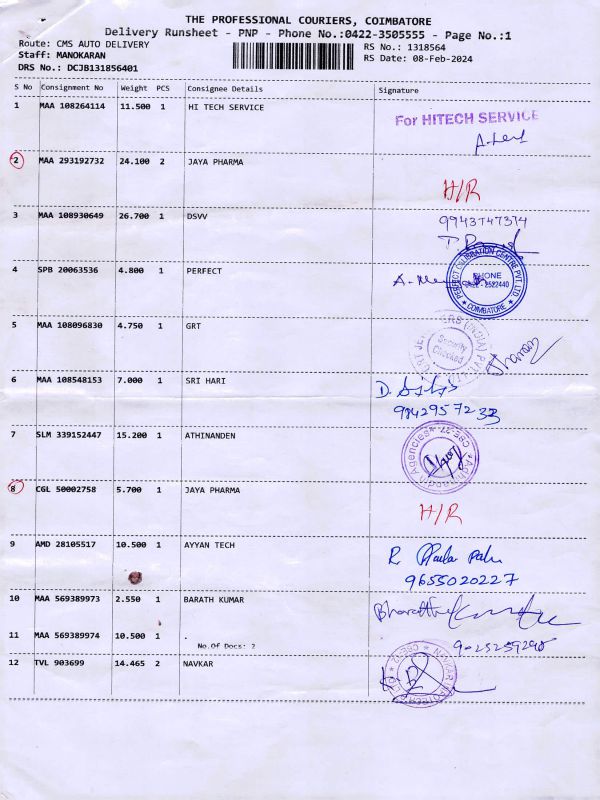 THE PROFESSIONAL COURIERS, COIMBATORE
Delivery Runsheet - PNP - Phone No.:0422-3505555 - Page No.:1
Route: CMS AUTO DELIVERY
RS No.: 1318564
Staff: MANOKARAN
RS Date: 08-Feb-2024
DRS No.: DCJB131856401
S No Consignment No Weight PCS Consignee Details Signature
1 MAA 108264114 11.500 1 HI TECH SERVICE
For HITECH SERVICE
2 MAA 293192732 24.100 2 JAYA PHARMA
H/R
3 MAA 108930649 26.700 1 DSVV
9943747374
4 SPB 20063536 4.800 1 PERFECT
PERFECT CALIBRATION CENTRE PVT LTD
PHONE
0422 - 2522440
COIMBATORE
5 MAA 108096830 4.750 1 GRT
Security
Checked
6 MAA 108548153 7.000 1 SRI HARI
9842957233
7 SLM 339152447 15.200 1 ATHINANDEN
Agencies
CBE-37
8 CGL 50002758 5.700 1 JAYA PHARMA
H/R
9 AMD 28105517 10.500 1 AYYAN TECH
9655020227
10 MAA 569389973 2.550 1 BARATH KUMAR
11 MAA 569389974 10.500 1 .
No.Of Docs: 2
9025259298
12 TVL 903699 14.465 2 NAVKAR
NAVKAR